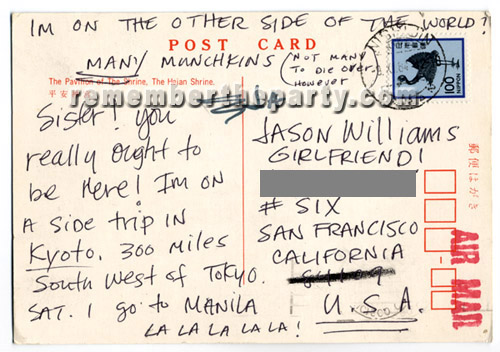 IM ON THE OTHER SIDE OF THE WORLD!
POST CARD
MANY MUNCHKINS (NOT MANY
TO DIE OVER,
HOWEVER
The Pavilion of The Shrine, The Heian Shrine.
平安
remembertheparty.com
Sister! You
really ought to
be Here! IM ON
A side trip IN
Kyoto. 300 miles
South West of Tokyo.
SAT. I go to MANILA
LA LA LA LA LA!
JASON Williams
GIRLFRIEND!
# SIX
SAN FRANCISCO
CALIFORNIA
U.S.A.
日本郵便
100
NIPPON
郵便はがき
AIR MAIL